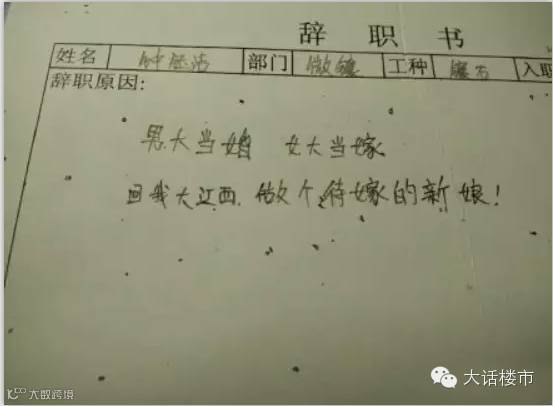 辞 职 书
姓名 部门 工种 入职
辞职原因:
男大当婚 女大当嫁
回我大江西,做个待嫁的新娘!
大话楼市
大数跨境